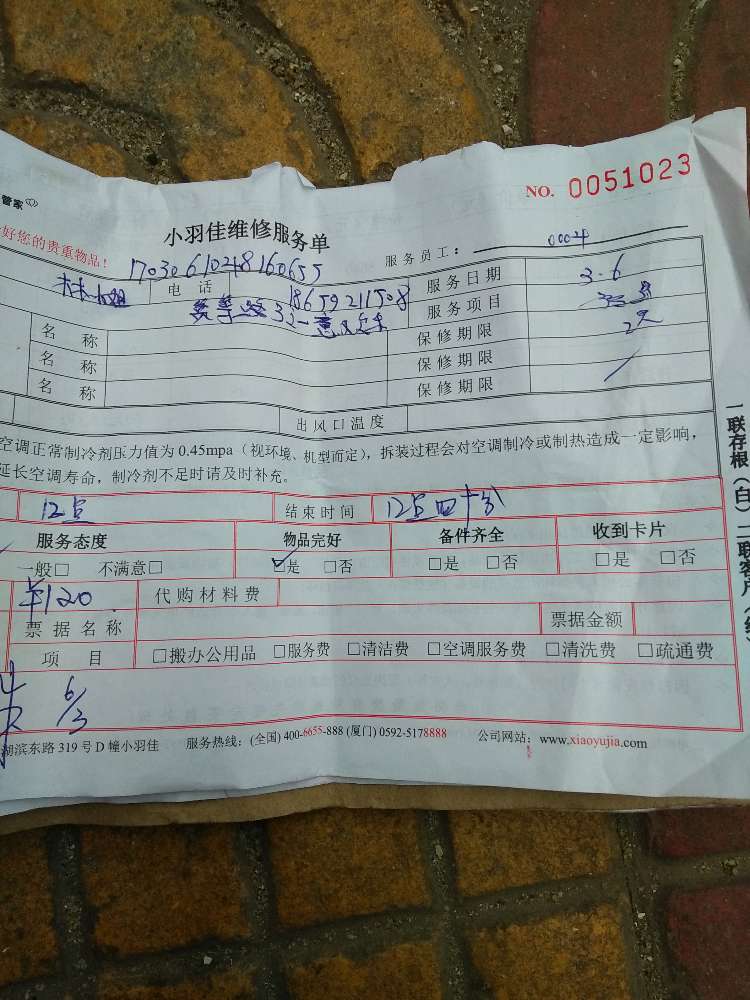 管家
NO. 0051023
好您的贵重物品！
小羽佳维修服务单
服务员工： 0004
17030610248160655
林小姐 电话 18659211508 服务日期 3.6
32- 服务项目
名称 保修期限 2天
名称 保修期限
名称 保修期限
出风口温度
空调正常制冷剂压力值为0.45mpa（视环境、机型而定），拆装过程会对空调制冷或制热造成一定影响，
延长空调寿命，制冷剂不足时请及时补充。
12点 结束时间 12点四十分
服务态度 物品完好 备件齐全 收到卡片
一般□ 不满意□ ☑是 □否 □是 □否 □是 □否
¥120 代购材料费
票据名称 票据金额
项目 □搬办公用品 □服务费 □清洁费 □空调服务费 □清洗费 □疏通费
6/3
湖滨东路319号D幢小羽佳 服务热线：(全国) 400-6655-888 (厦门) 0592-5178888 公司网站：www.xiaoyujia.com
一联存根（白）二联客户